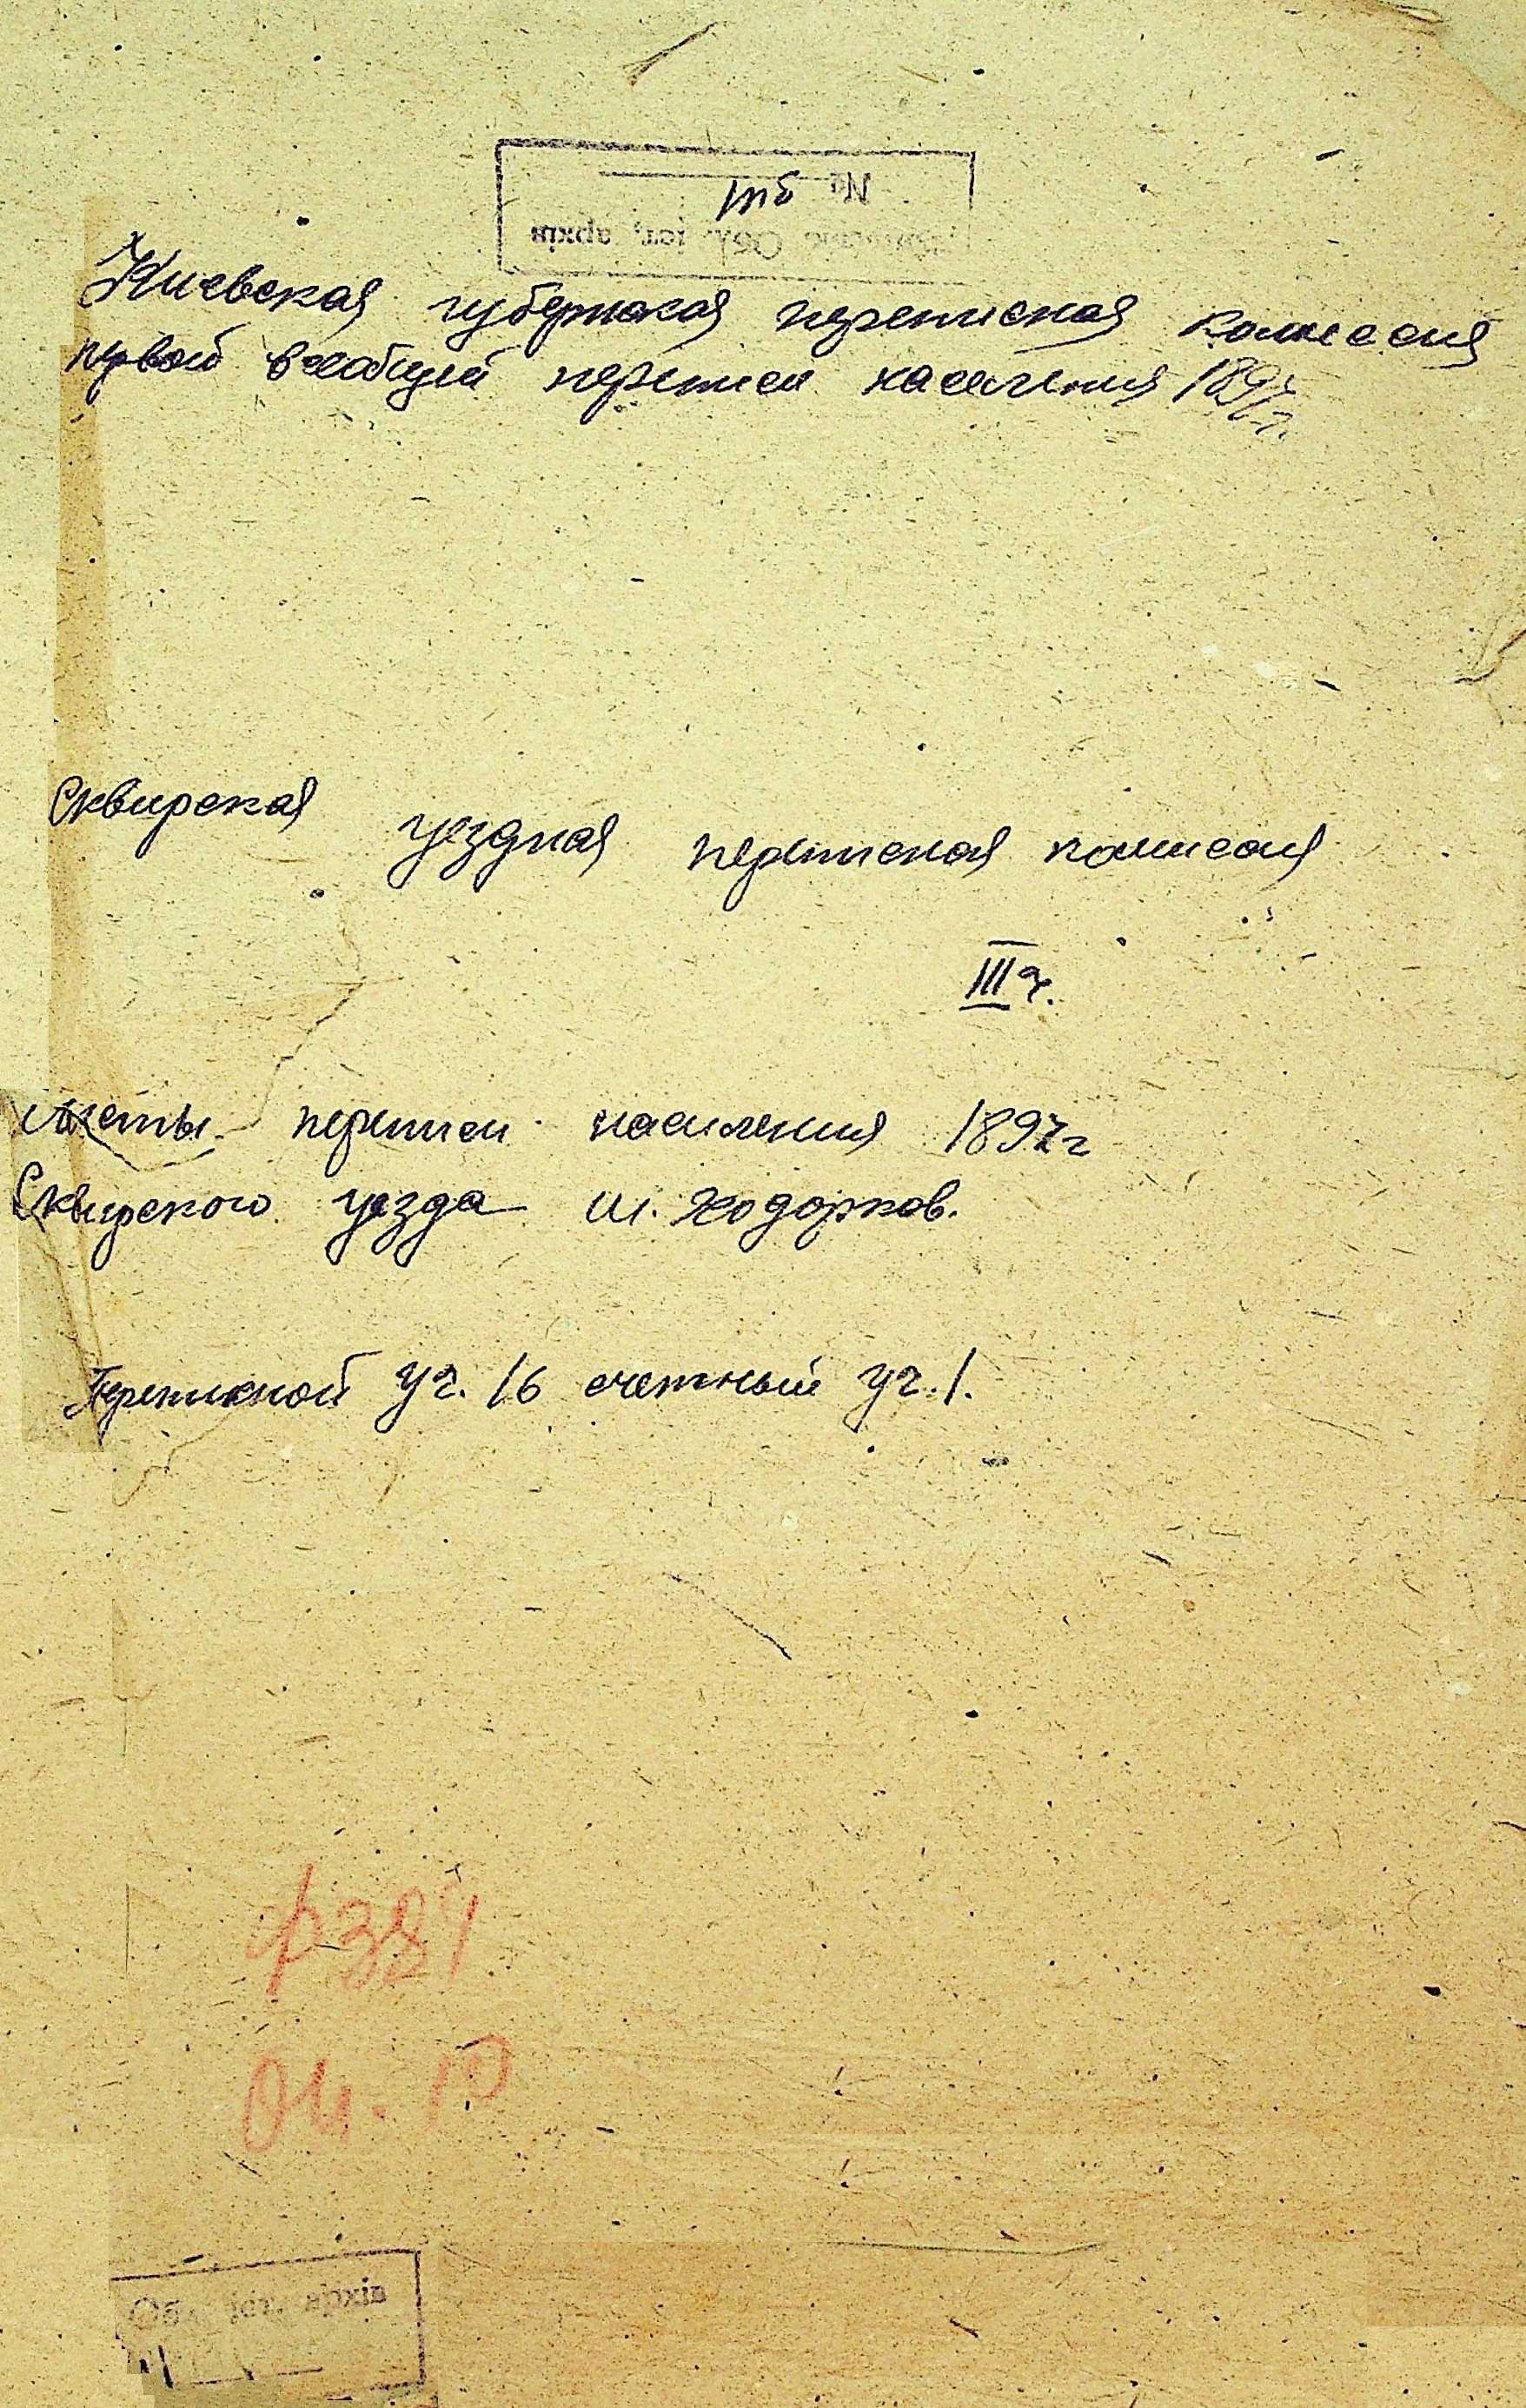 №
Обл. іст. архів
Киевская губернская переписная комиссия
первой всеобщей переписи населения 1897г.
Сквирская уездная переписная комиссия
III ч.
листы переписи населения 1897г
Сквирского уезда м. Ходорков.
Переписной уч. 16 счетный уч. 1.
ф 384
оп. 10
Обл. іст. архів